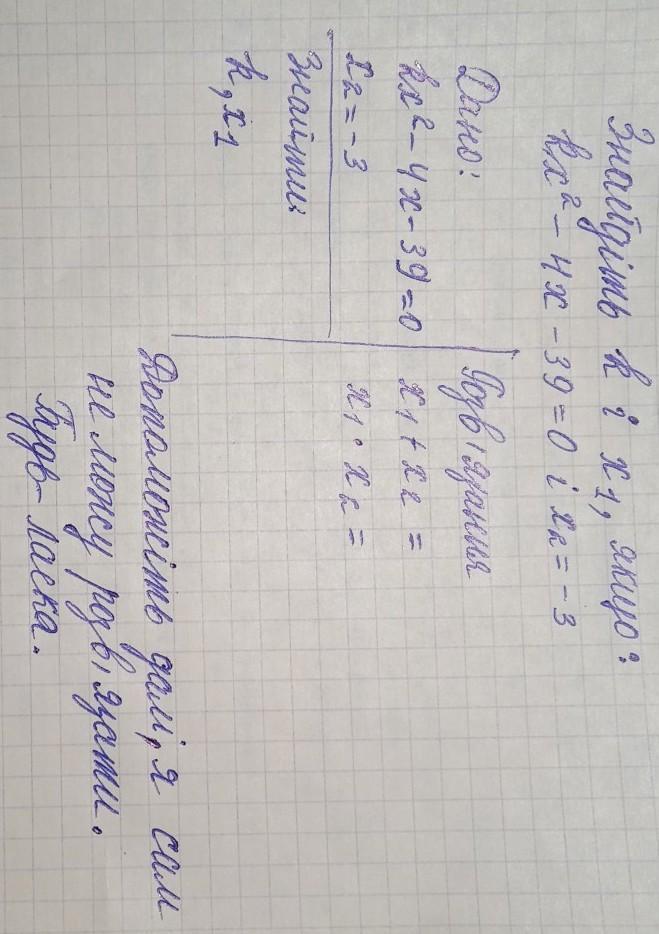 Знайдіть k і x₁, якщо:
kx² - 4x - 39 = 0 і x₂ = -3
Дано:
kx² - 4x - 39 = 0
x₂ = -3
Знайти:
k, x₁
Розв'язання
x₁ + x₂ =
x₁ · x₂ =
Допоможіть далі, я сам
не можу розв'язати.
Будь-ласка.